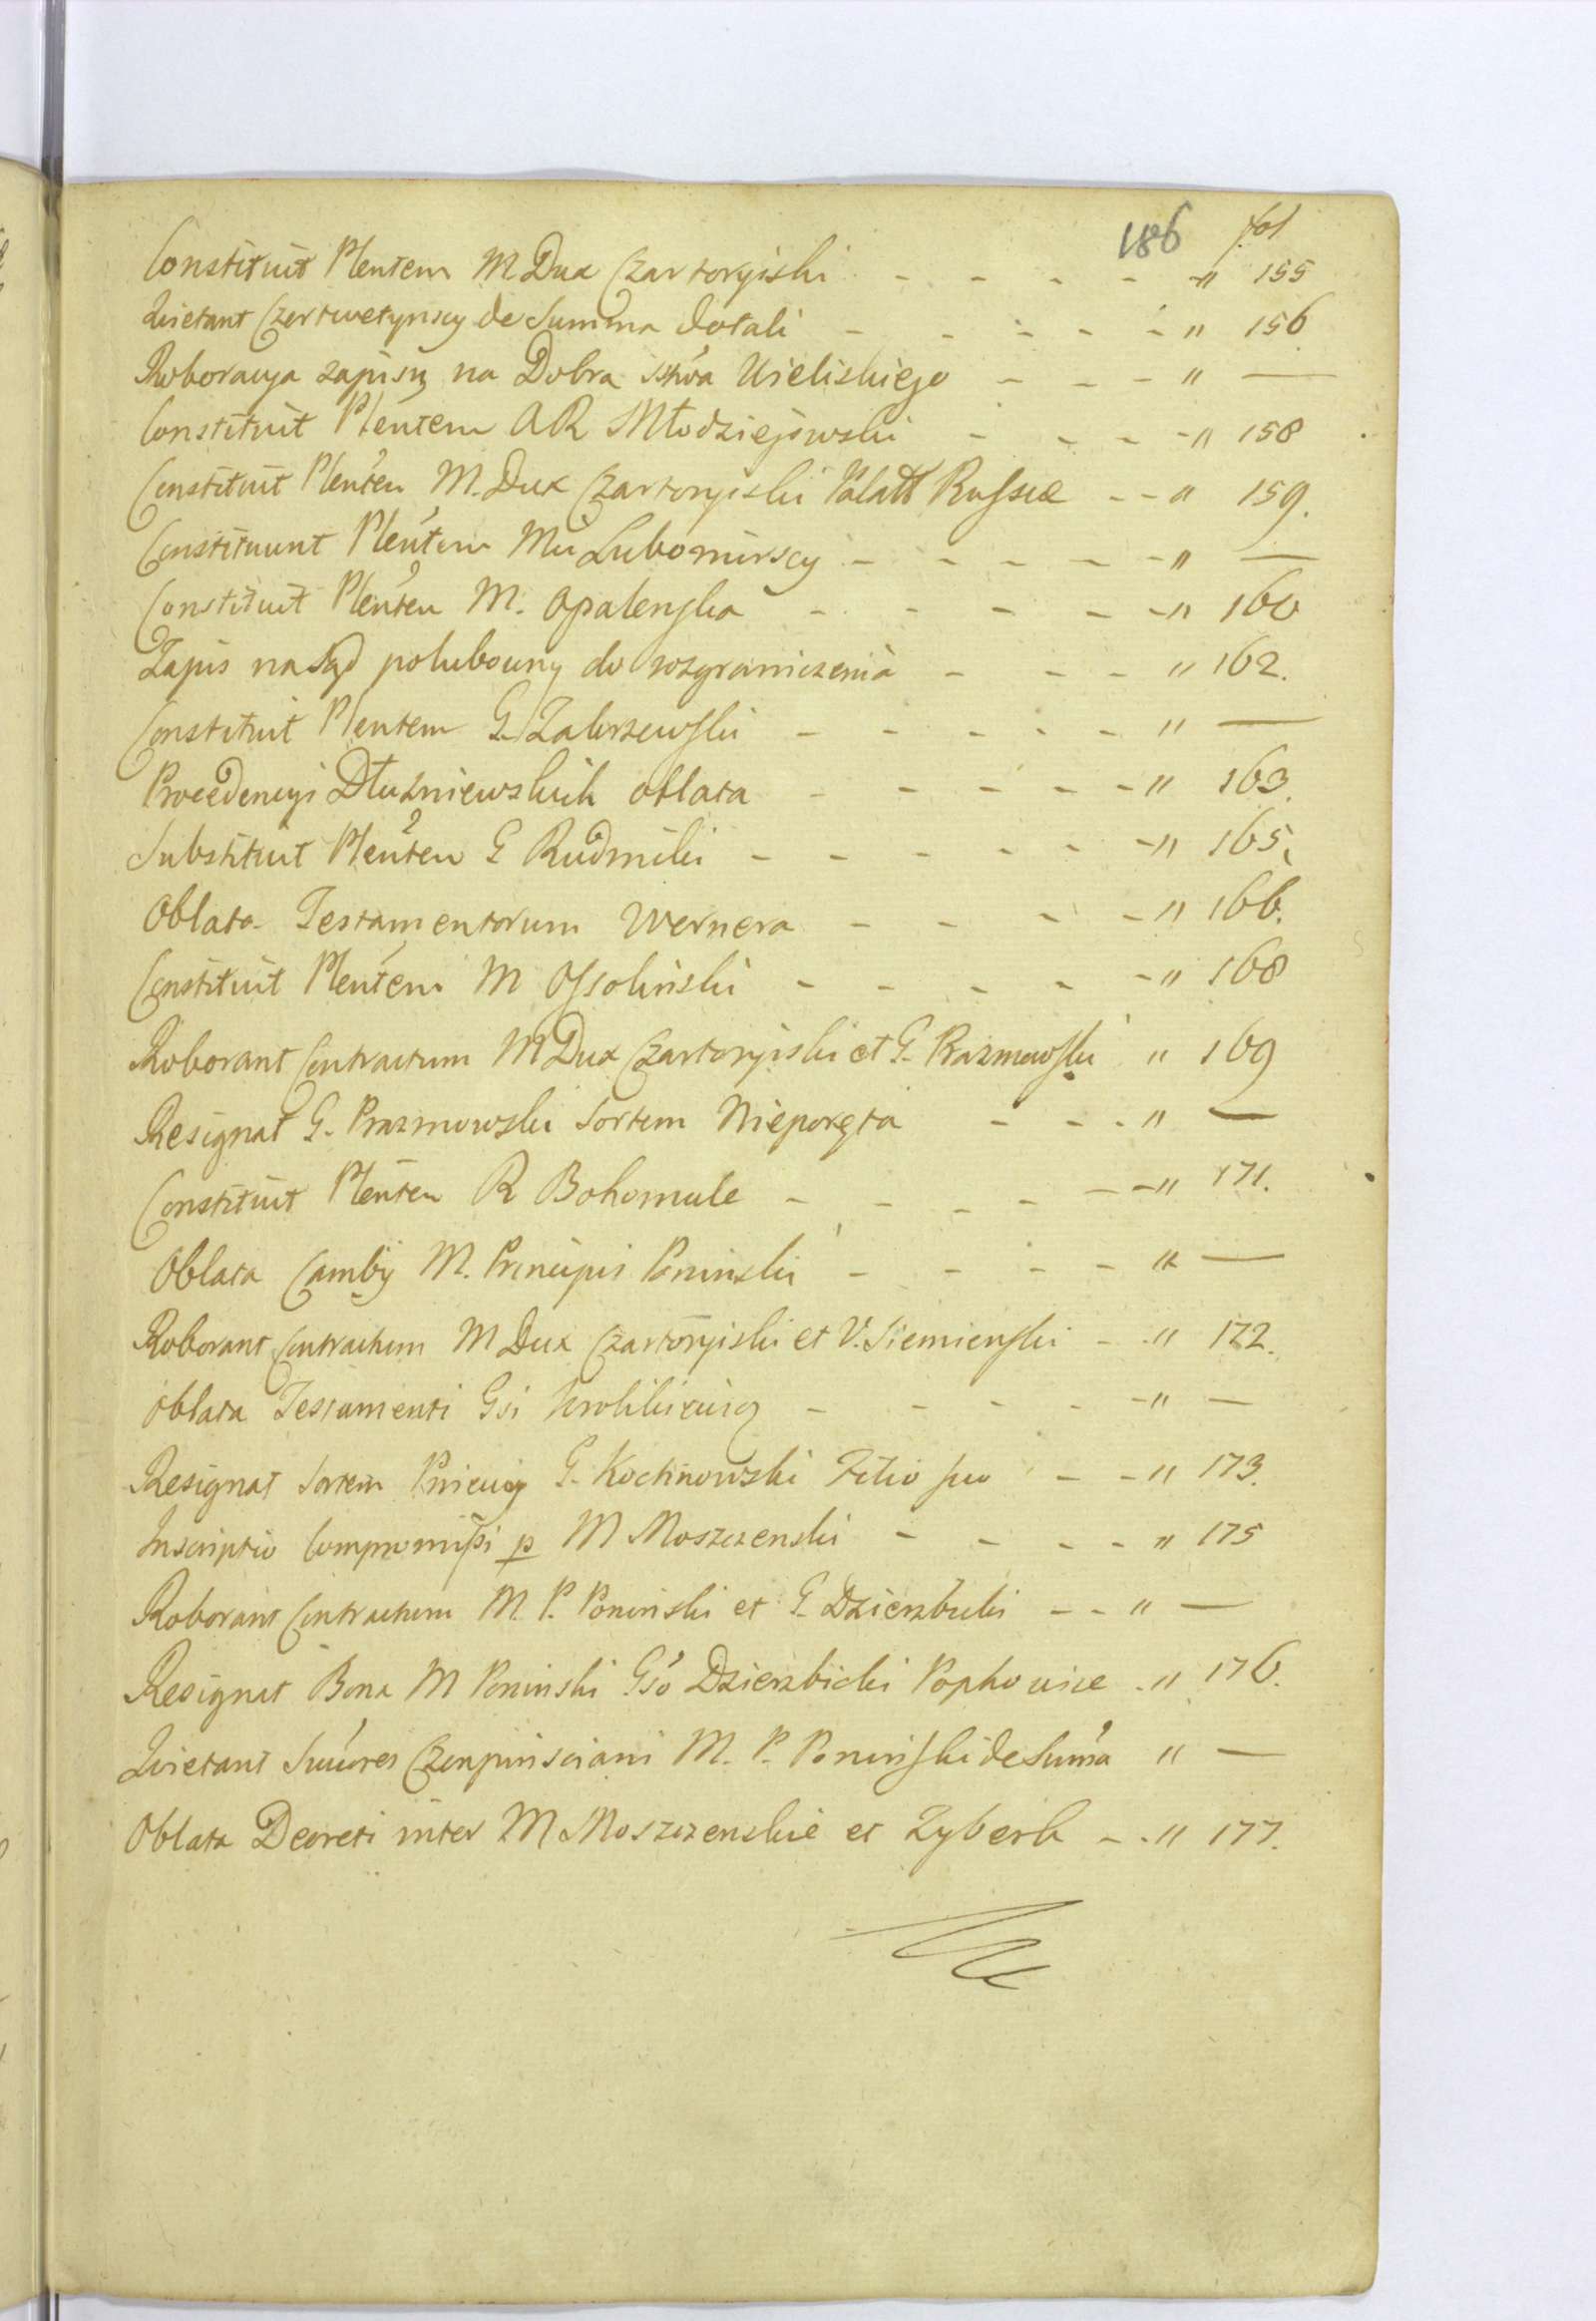 186 fol
Constituit Plentem M Dux Czartoryiski - - - - " 155
Quietant Czertwetynscy de Summa dotali - - - - - " 156
Roboracya zapisu na Dobra Sstwa Wieliskiego - - - " —
Constituit Plentem AR Młodziejowski - - - - " 158
Constituit Plenten M. Dux Czartoryiski Palatt Russiæ - - " 159.
Constituunt Plentem Mci Lubomirscy - - - - - " —
Constituit Plenten M. Opalenska - - - - - " 160
Zapis na Sąd polubowny do rozgraniczenia - - - " 162.
Constituit Plentem G. Zakrzewski - - - - - " —
Proced Dłużniewskich oblata - - - - - " 163.
Substituit Plenten G Rudnicki - - - - - - " 165.
Oblata Testamentorum Wernera - - - - " 166.
Constituit Plentem M Ossolinski - - - - - " 168
Roborant Contractum M Dux Czartoryiski et G. Prazmowski " 169
Resignat G. Prazmowski Sortem Nieporęta - - - " —
Constituit Plenten R Bohomule - - - - - - " 171.
Oblata Camby M. Principis Poninski - - - - " —
Roborant Contractum M Dux Czartoryiski et V. Siemienski - - " 172.
Oblata Testamenti Gsi - - - - - " —
Resignat Sortem G. Kochnowski Filio suo - - " 173.
Inscriptio Compromissi p M Moszczenski - - - - " 175
Roborant Contractum M. P. Poninski et G. Dzierzbicki - - " —
Resignat Bona M Poninski Gso Dzierzbicki Popkowice - " 176.
Quietant M. P. Poninski de Suma " —
Oblata Decreti inter M Moszczenskie et Zyberk - - " 177.